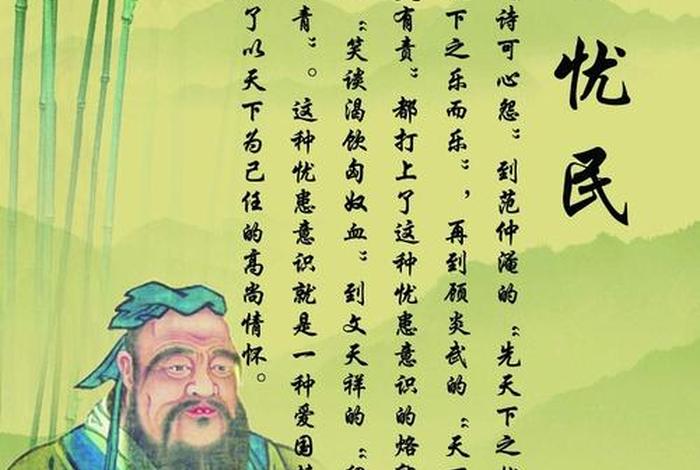 忧民
诗可心怨”到范仲淹的“先天下之
下之乐而乐”，再到顾炎武的“天
有责”都打上了这种忧患意识的烙
“笑谈渴饮匈奴血”到文天祥的“
青”。这种忧患意识就是一种爱国
了以天下为己任的高尚情怀。